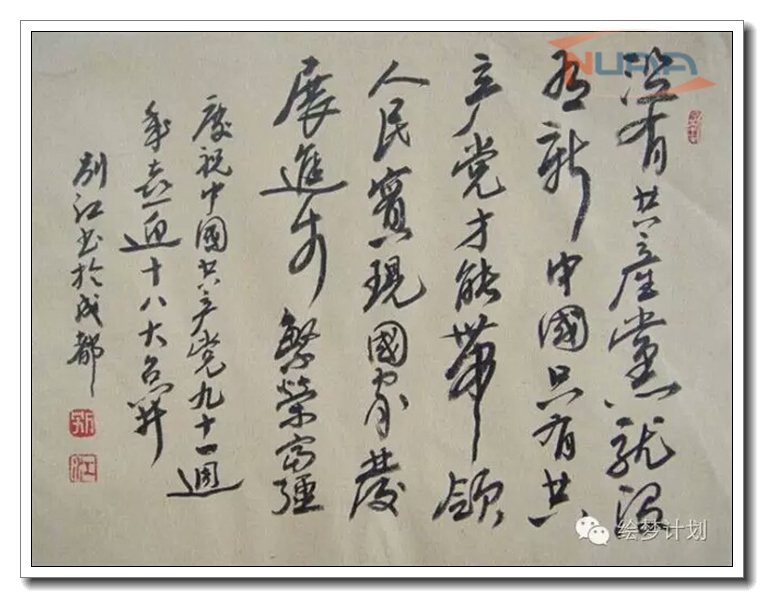 没有共產黨就没
有新中國只有共
产党才能帶领
人民實現國家發
展進步繁榮富强
慶祝中國共产党九十一週
年喜迎十八大召开
别江书於成都
别
江
NUAA
绘梦计划